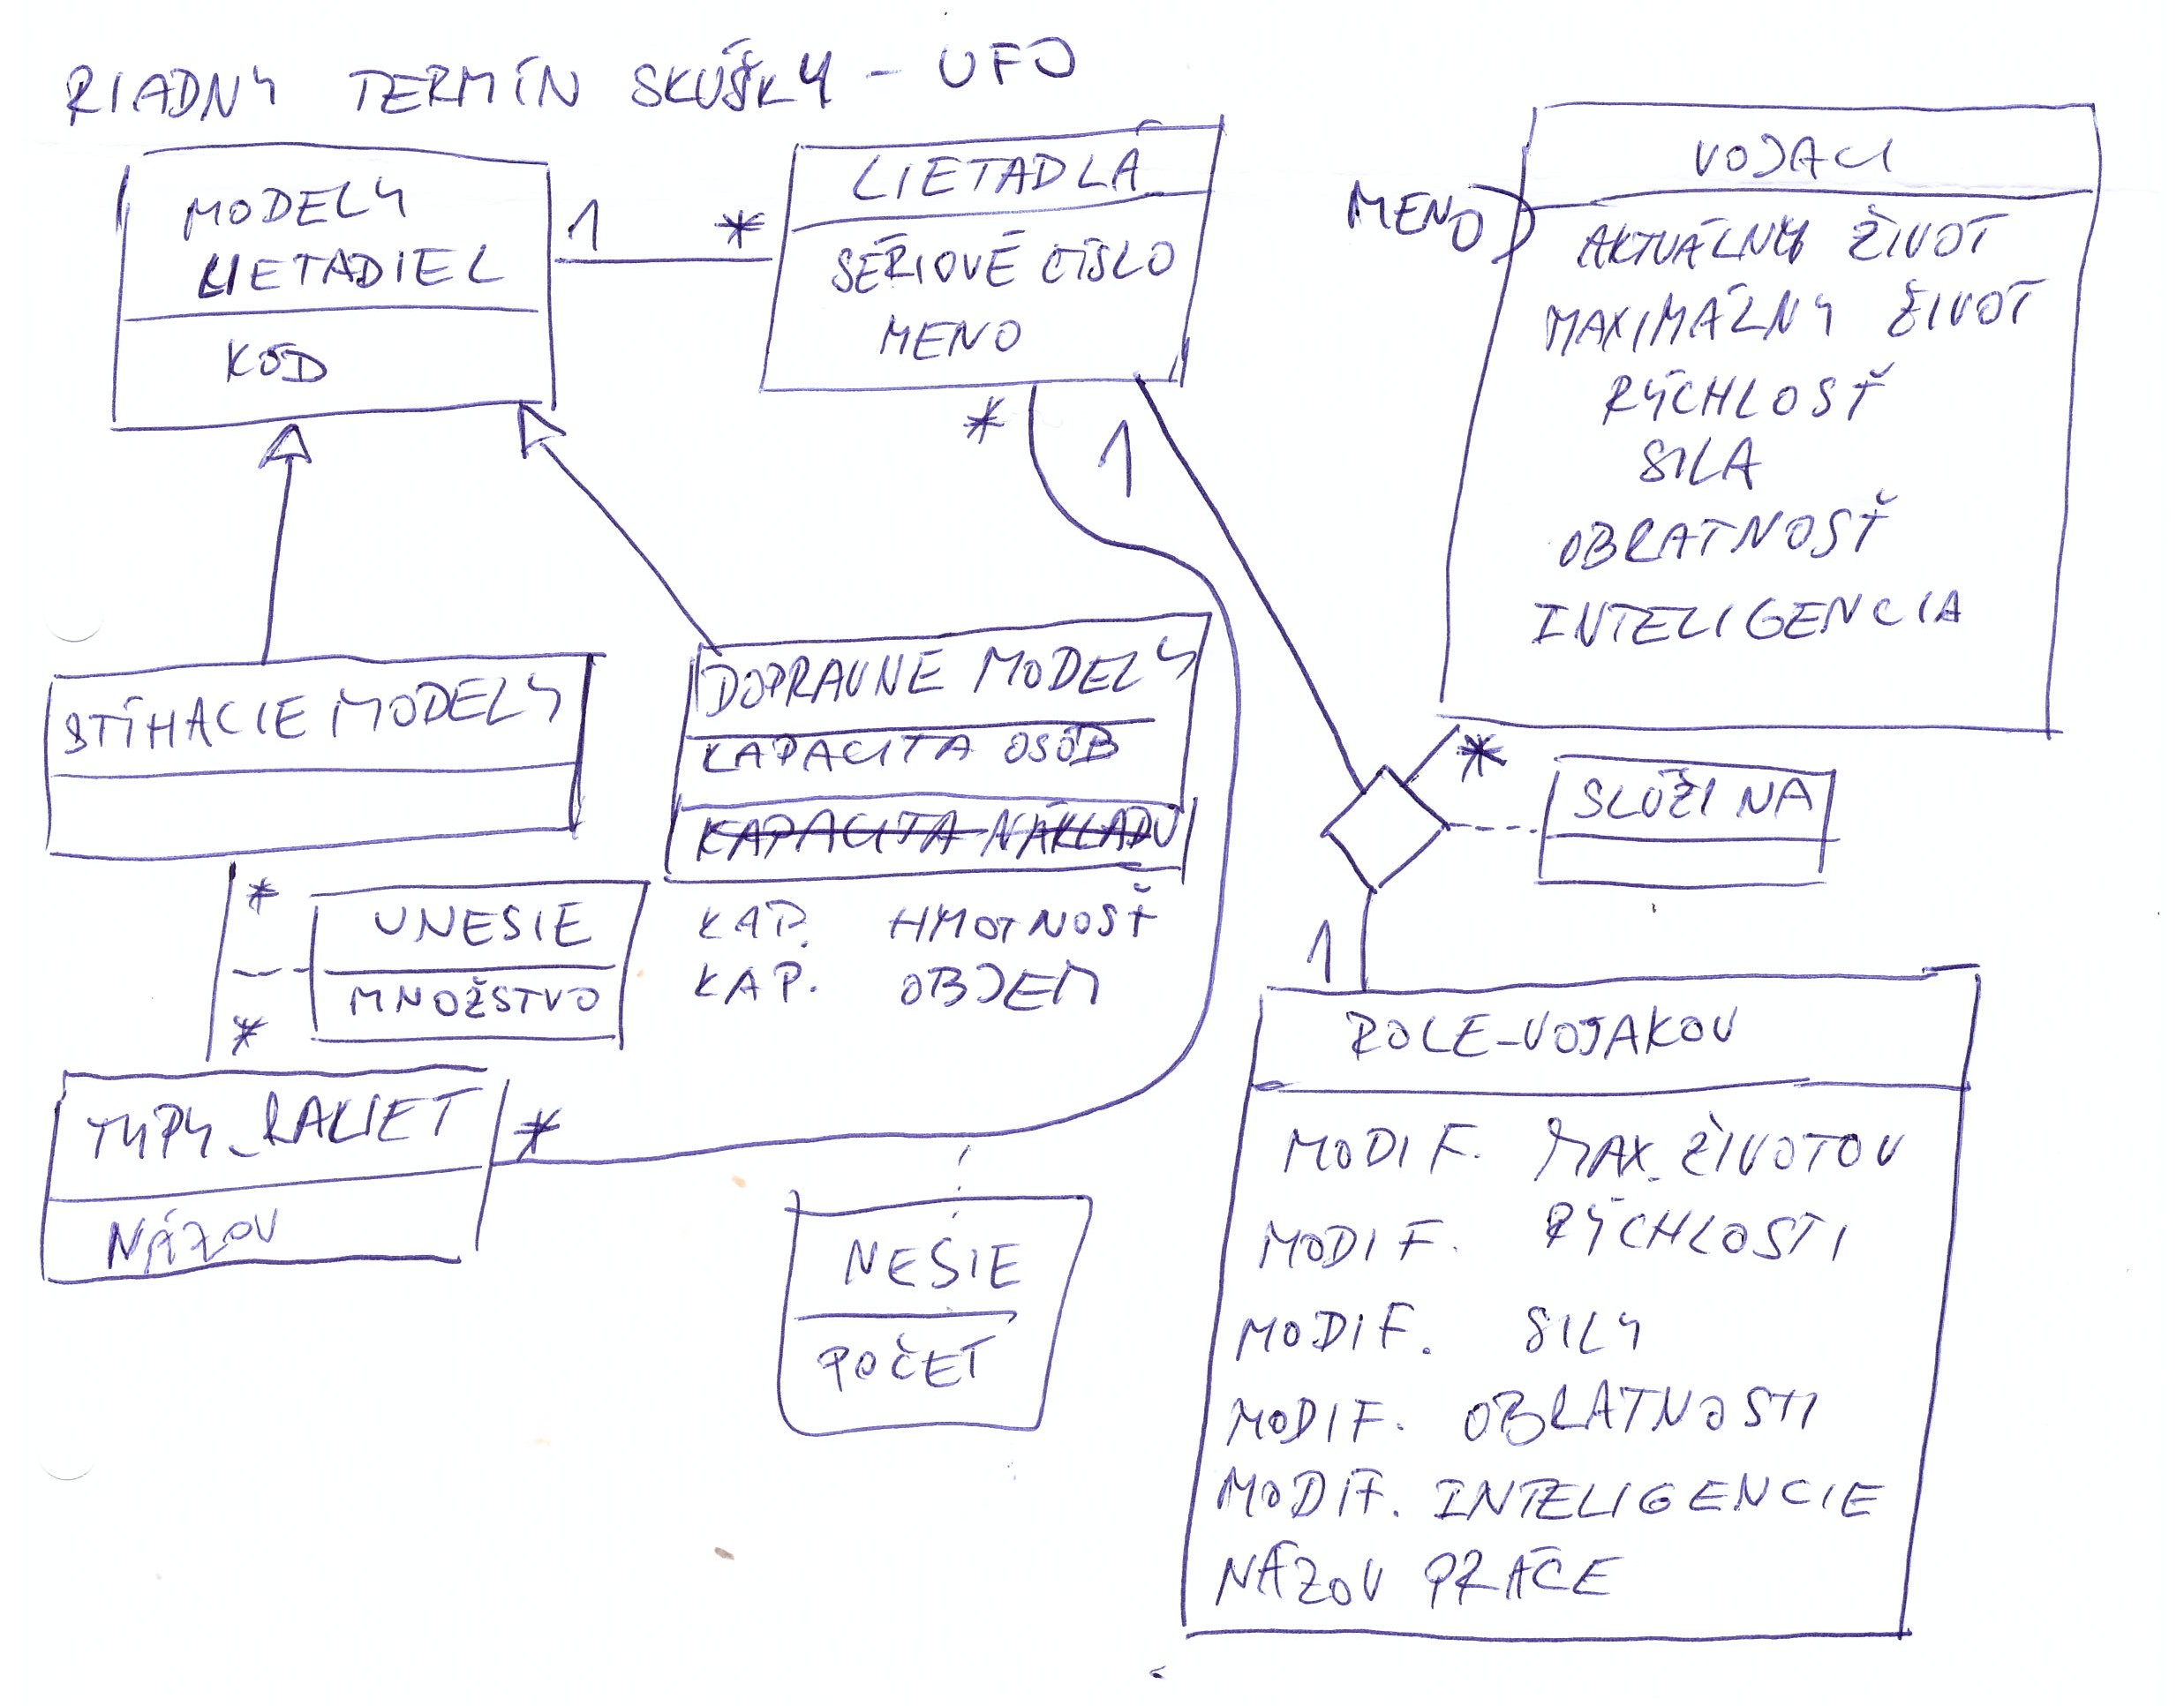 RIADNY TERMÍN SKÚŠKY - UFO
MODELY
LIETADIEL
KÓD
1
*
LIETADLÁ
SÉRIOVÉ ČÍSLO
MENO
*
1
VOJACI
MENO
AKTUÁLNY ŽIVOT
MAXIMÁLNY ŽIVOT
RÝCHLOSŤ
SILA
OBRATNOSŤ
INTELIGENCIA
STÍHACIE MODELY
DOPRAVNE MODELY
KAPACITA OSÔB
KAPACITA NÁKLADU
KAP. HMOTNOSŤ
KAP. OBJEM
*
UNESIE
MNOŽSTVO
*
*
SLÚŽI NA
1
TYPY_RAKIET
NÁZOV
*
NESIE
POČET
ROLE_VOJAKOV
MODIF. MAX. ŽIVOTOV
MODIF. RÝCHLOSTI
MODIF. SILY
MODIF. OBRATNOSTI
MODIF. INTELIGENCIE
NÁZOV PRÁCE